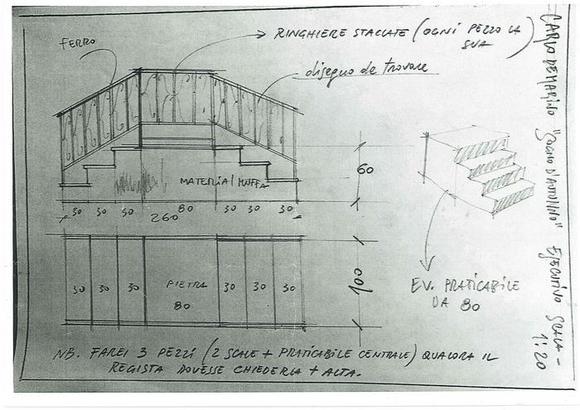 FERRO
RINGHIERE STACCATE (OGNI PEZZO LA
SUA)
disegno da trovare
MATERIA/MUFFA
60
30 30 30 80 30 30 30
260
30 30 30 PIETRA 30 30 30
80
100
EV. PRATICABILE
DA 80
NB. FAREI 3 PEZZI (2 SCALE + PRATICABILE CENTRALE) QUALORA IL
REGISTA DOVESSE CHIEDERLA + ALTA.
CARLO DE MARINO "SOGNO D'AUTUNNO" ESECUTIVO SCALA -
1:20